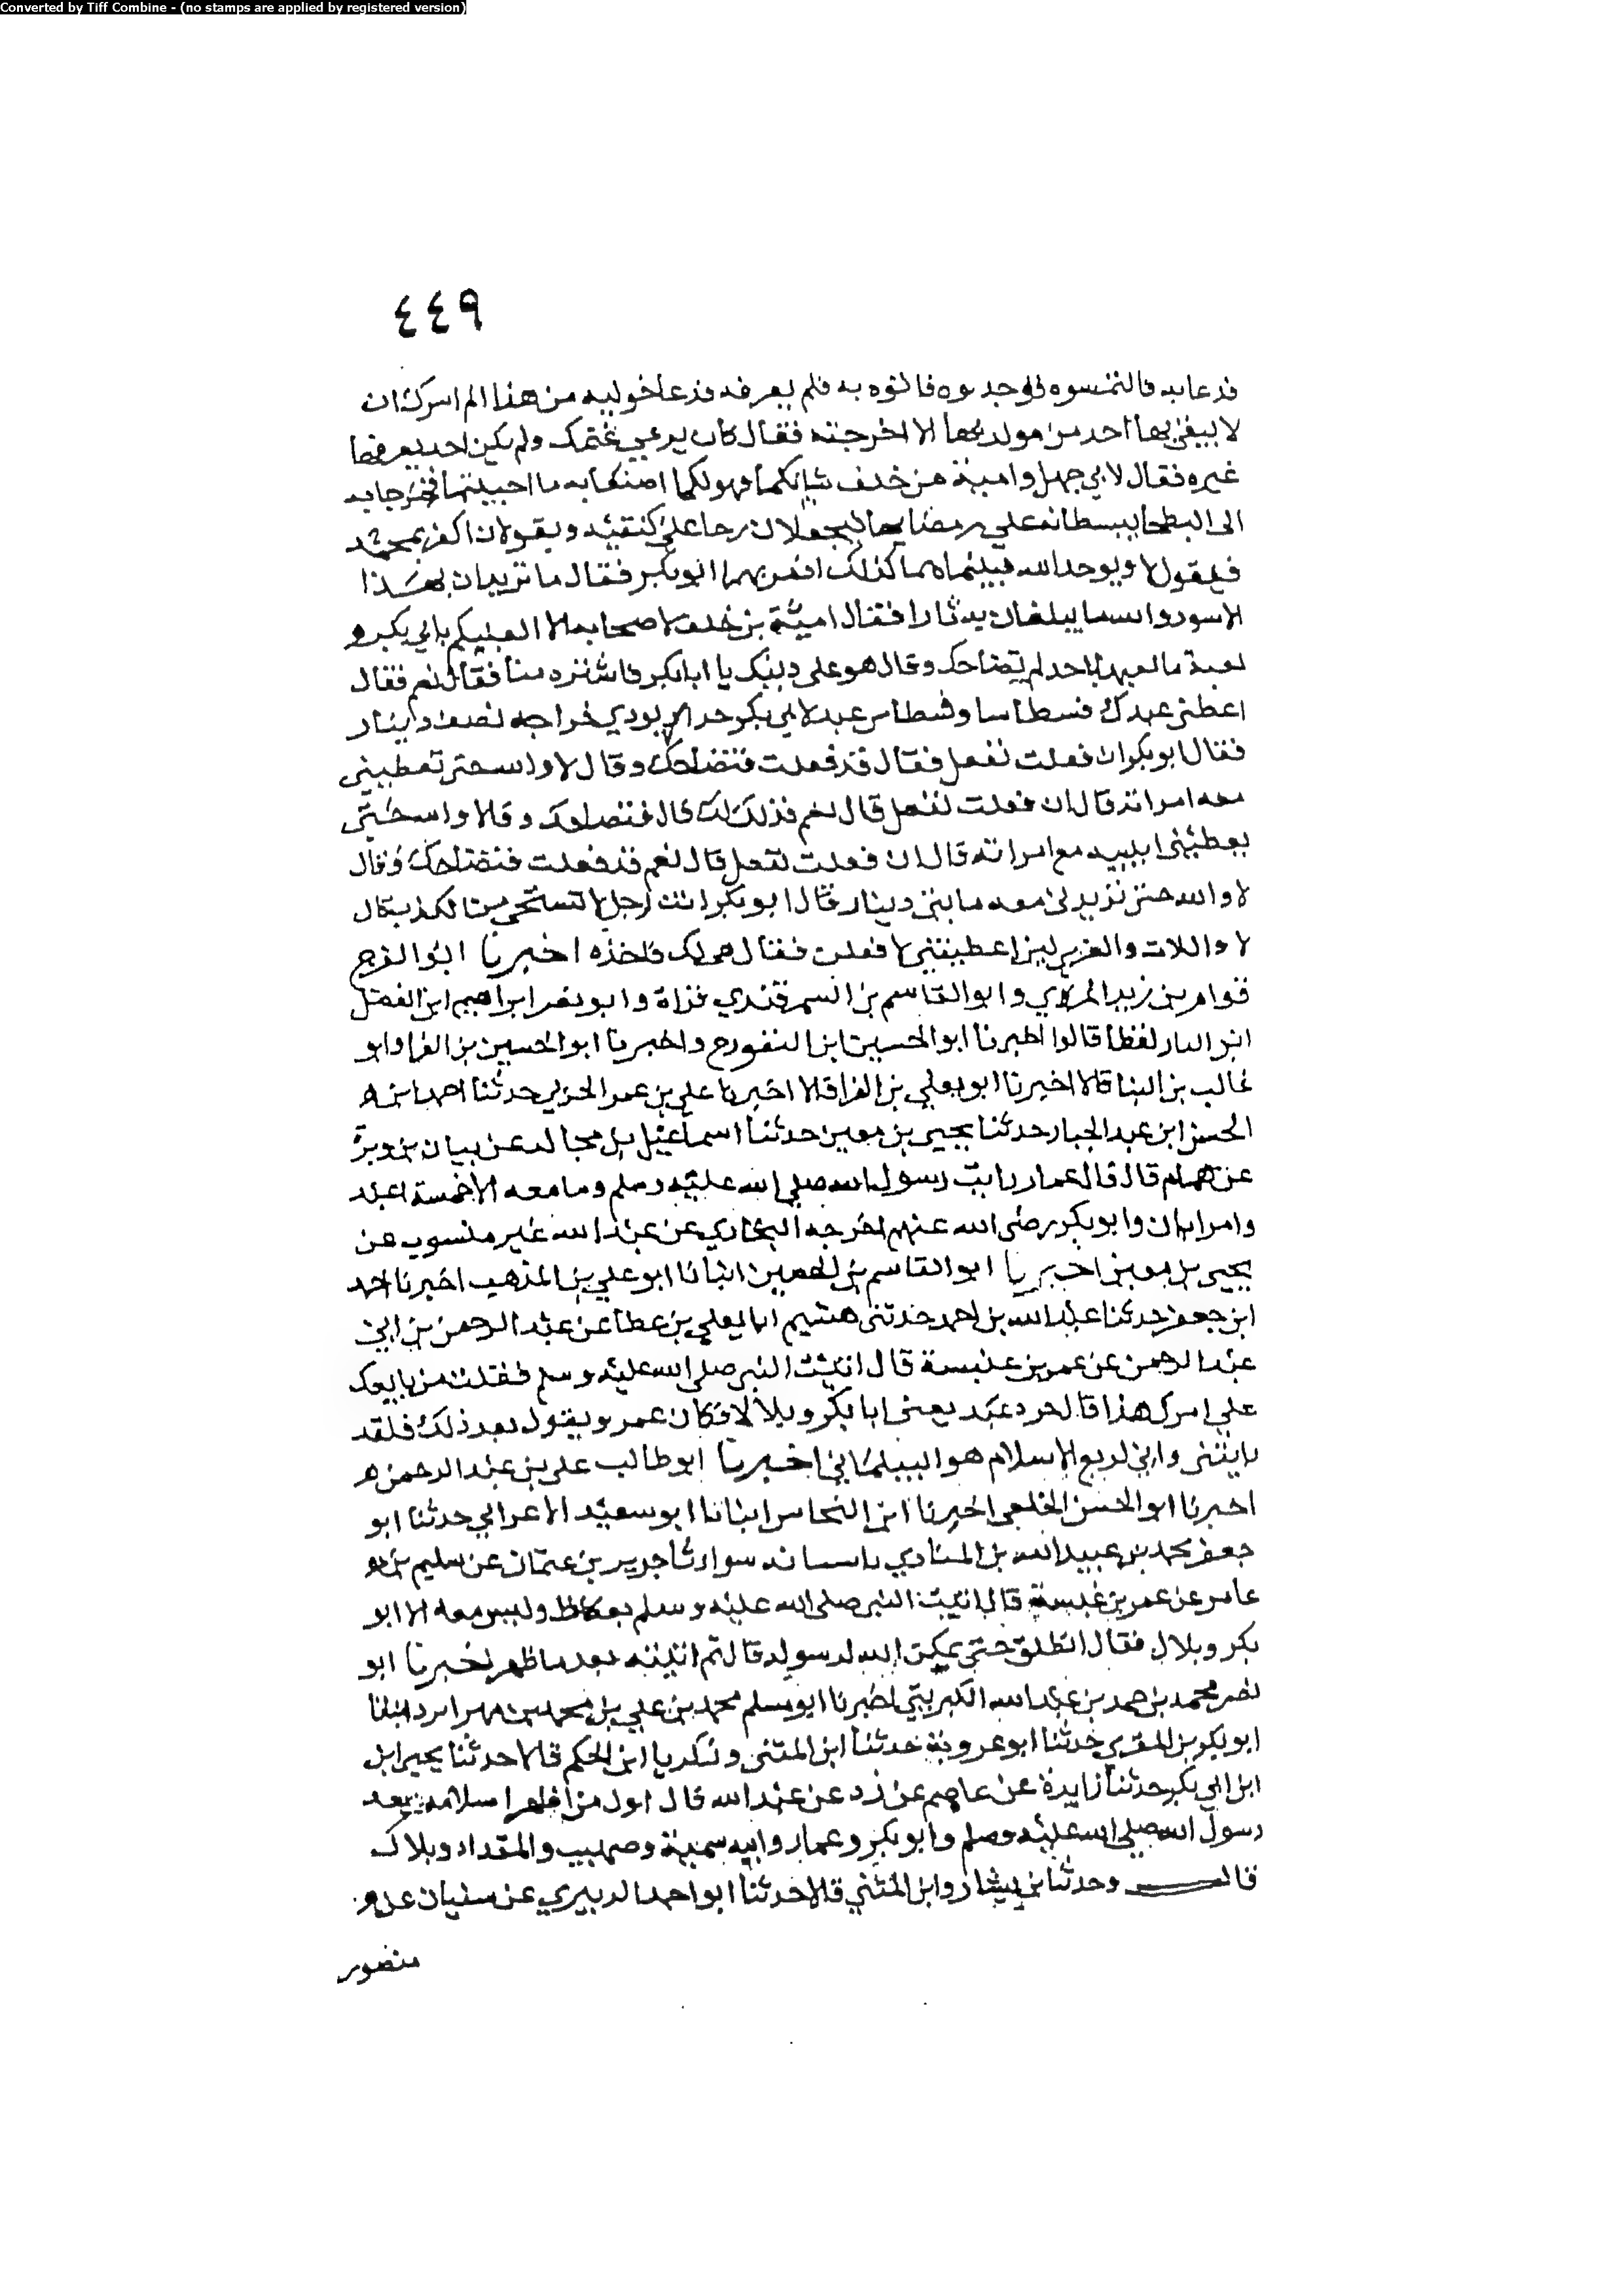 Converted by Tiff Combine - (no stamps are applied by registered version)
٤٤٩
فدعا به فالتمسوه فوجدوه فاتوه به فلم يعرفه فدعا خوليه من هذا الم امرك ان
لا يبقى بها احد من مولديها الا اخرجته فقال كان يرعى غنمك ولم يكن احد يعرفها
غيره فقال لابي جهل وامية من خلف شانكما فهو لكما اصنعا به ما احببتما فخرجا به
الى البطحا يبسطانه على رمضايها فيجعلان رحا على كتفيه ويقولان اكفر بمحمد
فيقول لا ويوحد الله فبينما هما كذلك اذ مر بهما ابو بكر فقال ما تريدان بهذا
الاسود والله ما يبلغان به ثارا فقال امية بن خلف لاصحابه الا العبنكم بابي بكر و
لعبة ما لعبها باحد لم تضاحك وقال هو على دينك يا ابا بكر فاشتره منا فقال نعم فقال
اعطني عبدك فسطاسا وفسطاس عبد لابي بكر حداد يودي خراجه نصف دينار
فقال ابو بكر ان فعلت تفعل فقال قد فعلت فتضاحك وقال لا والله حتى تعطيني
معه امراته قال ان فعلت تفعل قال نعم فذلك لك قال فتضاحك وقالا والله حتى
يعطيني ابنته مع امراته قال ان فعلت تفعل قال نعم قد فعلت فتضاحك وقال
لا والله حتى تزيدني معه مايتي دينار فقال ابو بكر انت رجل لا تستحي من الكذب قال
لا واللات والعزى لين اعطيتني لافعلن فقال هي لك فاخذه اخبرنا ابو الفرج
قوام بن زيد المري وابو القاسم بن السمرقندي قراة وابو نصر ابراهيم ابن الفضل
ابن البار لفظا قالوا اخبرنا ابو الحسين ابن النقور ح واخبرنا ابو الحسين بن الفرا وابو
غالب بن البنا قالا اخبرنا ابو يعلى بن الفرا قالا اخبرنا علي بن عمر الحربي حدثنا احمد بن
الحسن ابن عبد الجبار حدثنا يحيى بن معين حدثنا اسماعيل بن مجالد عن بيان بن وبرة
عن همام قال قال عمار رايت رسول الله صلى الله عليه وسلم وما معه الا خمسة اعبد
وامراتان وابو بكر رضى الله عنهم اخرجه البخاري عن عبد الله غير منسوب عن
يحيى بن معين اخبرنا ابو القاسم بن الحصين انبانا ابو علي بن المذهب اخبرنا احمد
ابن جعفر حدثنا عبد الله بن احمد حدثني هشيم انا يعلى بن عطا عن عبد الرحمن بن ابي
عبد الرحمن عن عمر بن عنبسة قال اتيت النبي صلى الله عليه وسلم فقلت من بايعك
على امرك هذا قال حر وعبد يعني ابا بكر وبلالا فكان عمرو يقول بعد ذلك فلقد
رايتني واني لربع الاسلام هو البيلماني اخبرنا ابو طالب على بن عبد الرحمن
اخبرنا ابو الحسن الخلعي اخبرنا ابن النحاس انبانا ابو سعيد الاعرابي حدثنا ابو
جعفر محمد بن عبيد الله بن المنادي سوار ثنا جرير بن عثمان عن سليم بن
عامر عن عمر بن عبسة قال اتيت النبي صلى الله عليه وسلم بعكاظ وليس معه الا ابو
بكر وبلال فقال انطلق حتى يمكن الله لرسوله قال ثم اتيته بعد ما ظهر اخبرنا ابو
نصر محمد بن حمد بن عبد الله الكبريتي اخبرنا ابو مسلم محمد بن علي بن محمد بن مهرابزد انبانا
ابو بكر بن المقري حدثنا ابو عروبة حدثنا ابن المثنى وزكريا ابن الحكم قالا حدثنا يحيى ابن
ابن ابي بكر حدثنا زايدة عن عاصم عن زر عن عبد الله قال اول من اظهر اسلامه سبعة
رسول الله صلى الله عليه وسلم وابو بكر وعمار وابيه سمية وصهيب والمقداد وبلال
قال وحدثنا ابن بشار وابن المثني قالا حدثنا ابو احمد الزبيري عن سفيان عن
منصور